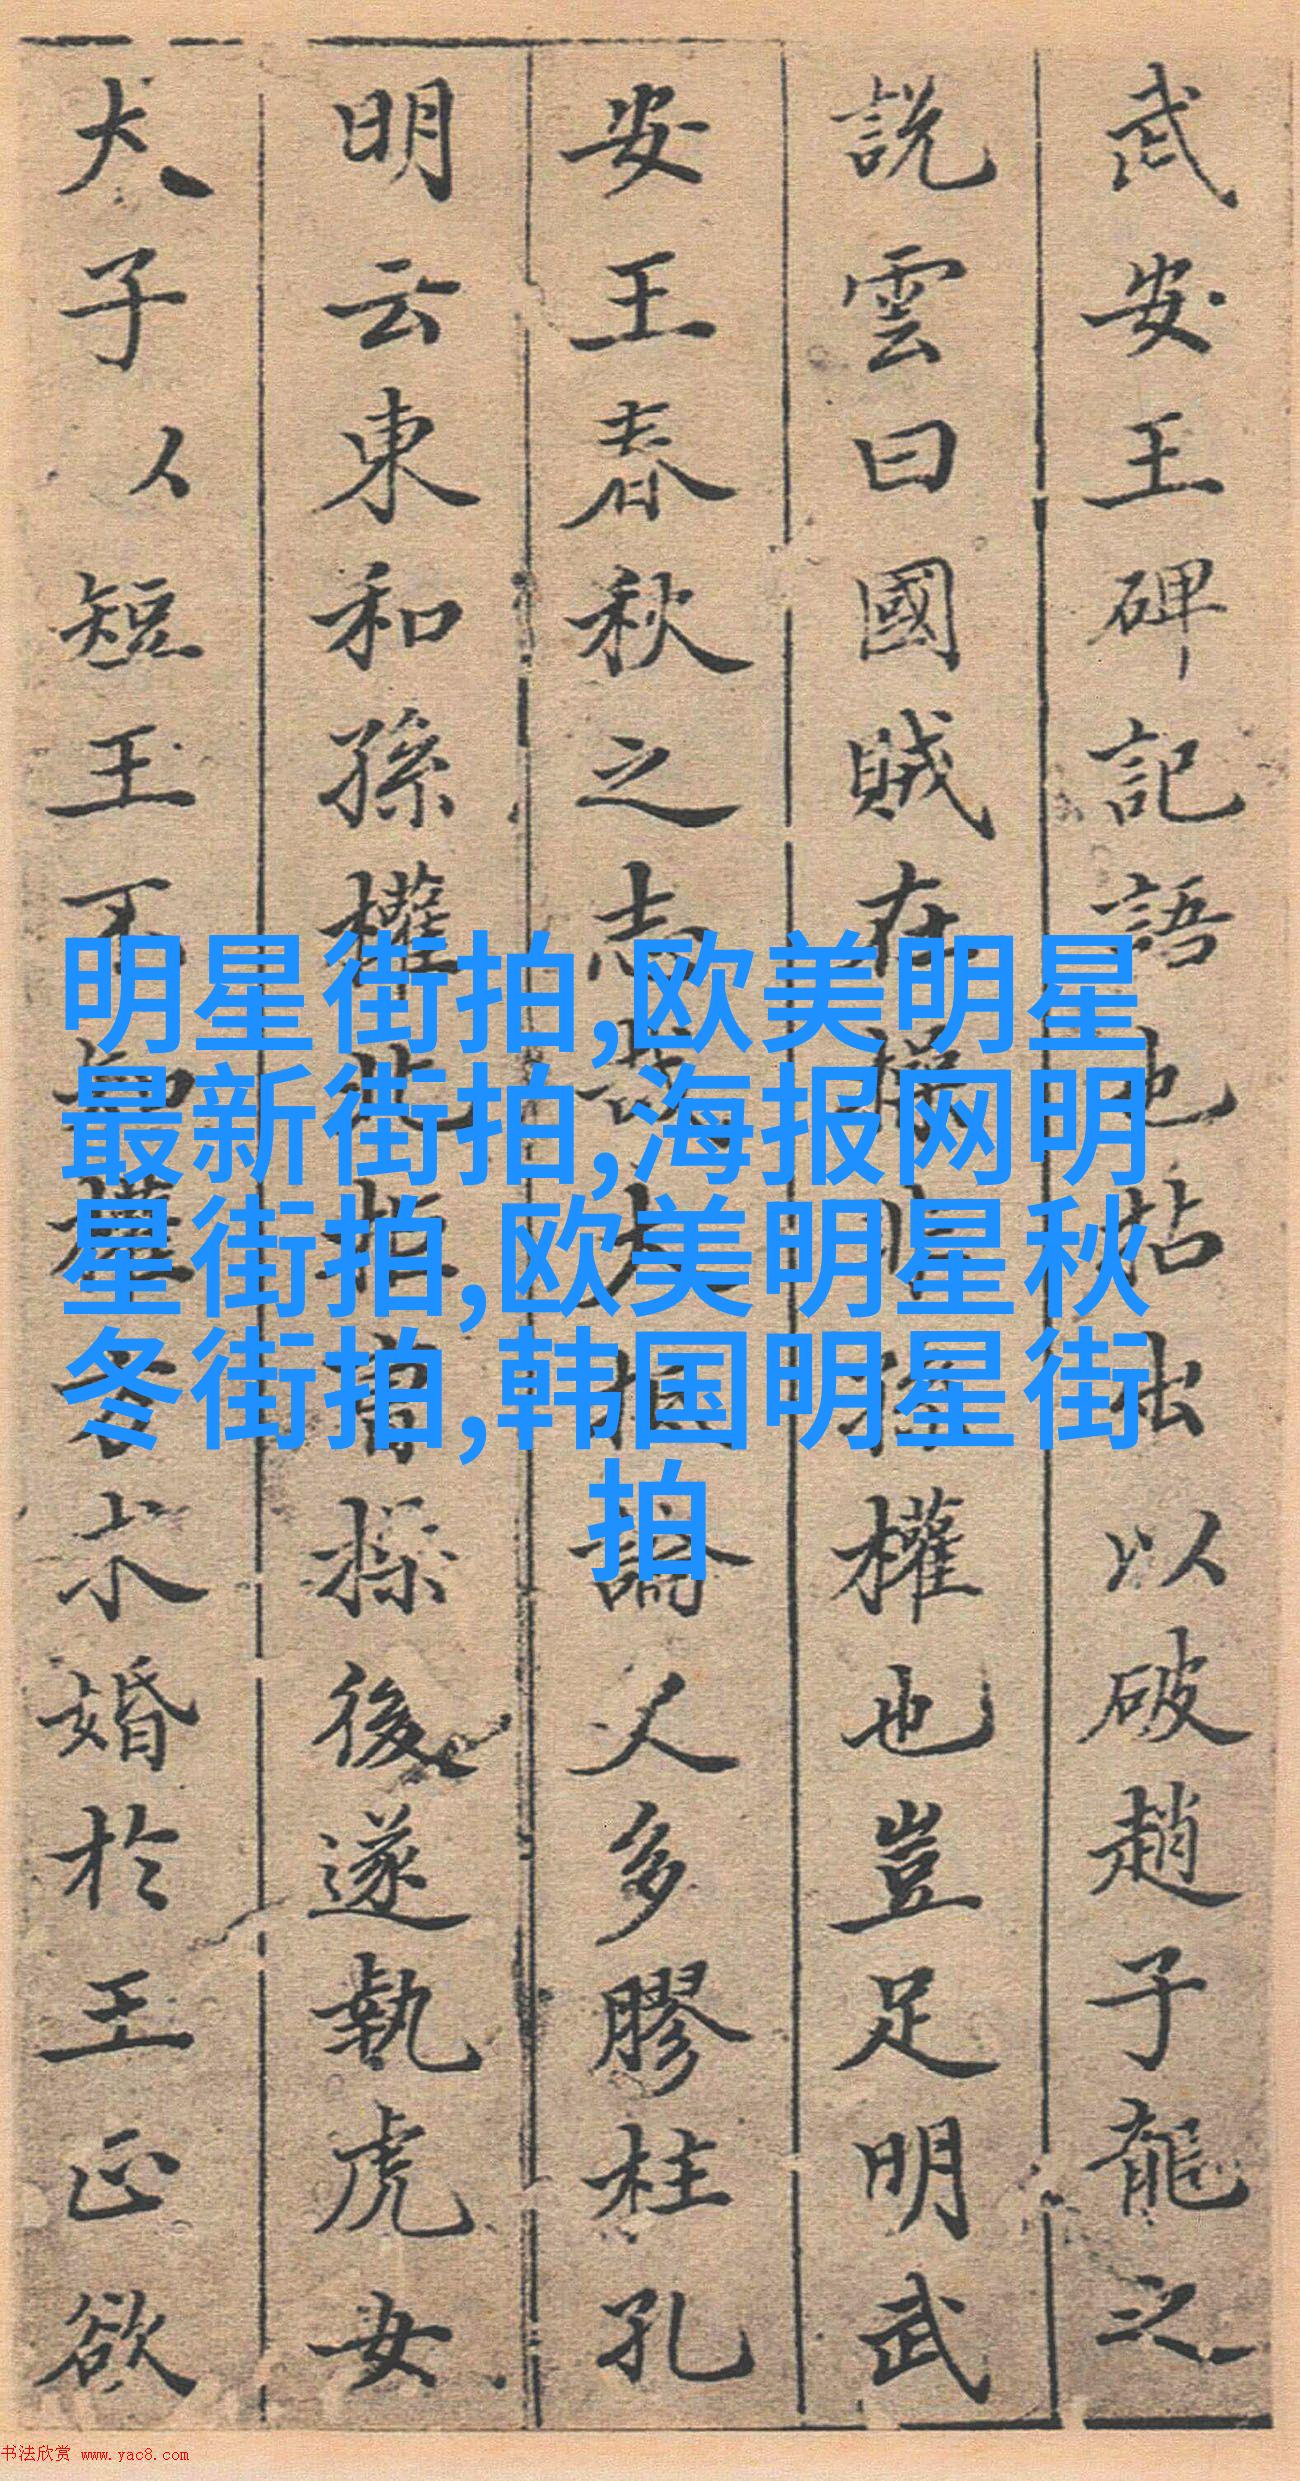 武安王碑記語也拈出以破趙子龍之
說雲曰國賊在操非孫權也豈足明武
安王春秋之志哉大抵論人多膠柱孔
明云東和孫權北拒曹操後遂執虎女
犬子以短王不知權方求婚於王正欲
明星街拍,欧美明星
最新街拍,海报网明
星街拍,欧美明星秋
冬街拍,韩国明星街
拍
书法欣赏 www.yac8.com